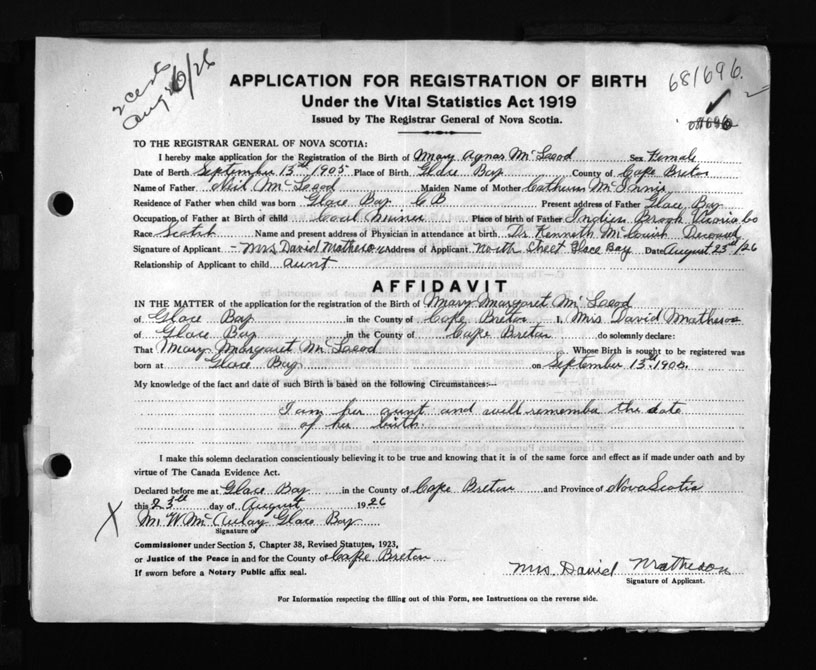 2 certs
Aug 26/26
681696
APPLICATION FOR REGISTRATION OF BIRTH
Under the Vital Statistics Act 1919
Issued by The Registrar General of Nova Scotia.
TO THE REGISTRAR GENERAL OF NOVA SCOTIA:
I hereby make application for the Registration of the Birth of Mary Agnas McLeod Sex Female
Date of Birth September 13th 1905 Place of Birth Glace Bay County of Cape Breton
Name of Father Neil McLeod Maiden Name of Mother Catherine McInnis
Residence of Father when child was born Glace Bay C B Present address of Father Glace Bay
Occupation of Father at Birth of child Coal Miner Place of birth of Father Indian Brook Victoria Co
Race Scotch Name and present address of Physician in attendance at birth Dr Kenneth McCuish Deceased
Signature of Applicant - Mrs David Matheson Address of Applicant North Street Glace Bay Date August 23rd/26
Relationship of Applicant to child aunt
AFFIDAVIT
IN THE MATTER of the application for the registration of the Birth of Mary Margaret McLeod
of Glace Bay in the County of Cape Breton I, Mrs David Matheson
of Glace Bay in the County of Cape Breton do solemnly declare:
That Mary Margaret McLeod Whose Birth is sought to be registered was
born at Glace Bay on September 13th 1905.
My knowledge of the fact and date of such Birth is based on the following Circumstances:—
I am her aunt and well remember the date
of her birth.
I make this solemn declaration conscientiously believing it to be true and knowing that it is of the same force and effect as if made under oath and by
virtue of The Canada Evidence Act.
Declared before me at Glace Bay in the County of Cape Breton and Province of Nova Scotia
this 23rd day of August 1926
X M W McAulay Glace Bay
Signature of
Commissioner under Section 5, Chapter 38, Revised Statutes, 1923,
or Justice of the Peace in and for the County of Cape Breton
If sworn before a Notary Public affix seal.
Mrs. David Matheson
Signature of Applicant.
For Information respecting the filling out of this Form, see Instructions on the reverse side.